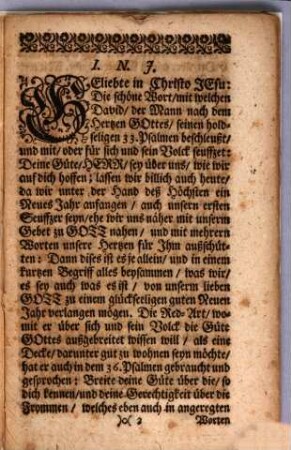 I. N. J.
GEliebte in Christo JEsu:
Die schöne Wort/ mit welchen
David/ der Mann nach dem
Hertzen GOttes/ seinen hold-
seligen 33. Psalmen beschleußt/
und mit/ oder für sich und sein Volck seuffzet:
Deine Güte/ HERR/ sey über uns/ wie wir
auf dich hoffen; lassen wir billich auch heute/
da wir unter der Hand deß Höchsten ein
Neues Jahr anfangen/ auch unsern ersten
Seuffzer seyn/ ehe wir uns näher mit unserm
Gebet zu GOTT nahen/ und mit mehrern
Worten unsere Hertzen für Ihm außschüt-
ten: Dann dises ist es allein/ und in einem
kurtzen Begriff alles beysammen/ was wir/
es sey auch was es ist/ von unserm lieben
GOTT zu einem glückseeligen guten Neuen
Jahr verlangen mögen. Die Red-Art/ wo-
mit er über sich und sein Volck die Güte
GOttes außgebreitet wissen will/ als eine
Decke/ darunter gut zu wohnen seyn möchte/
hat er auch in dem 36. Psalmen gebraucht und
gesprochen: Breite deine Güte über die/ so
dich kennen/ und deine Gerechtigkeit über die
Frommen/ welches eben auch in angeregten
)o( 2 Worten